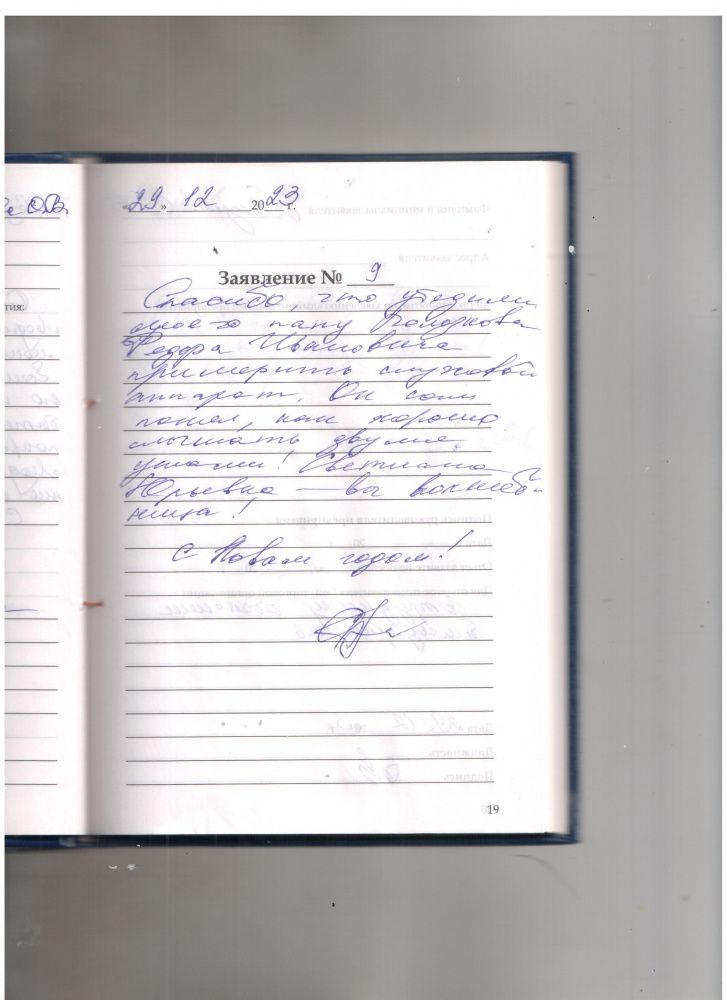 е О.В.
«29» 12 2023 г.
тия:
Заявление № 9
Спасибо, что убедили
моего папу
Федора Ивановича
примерить слуховой
аппарат. Он сам
понял, как хорошо
слышать двумя
ушами! Светлана
Юрьевна – вы волшеб-
ница!
С Новым годом!
19